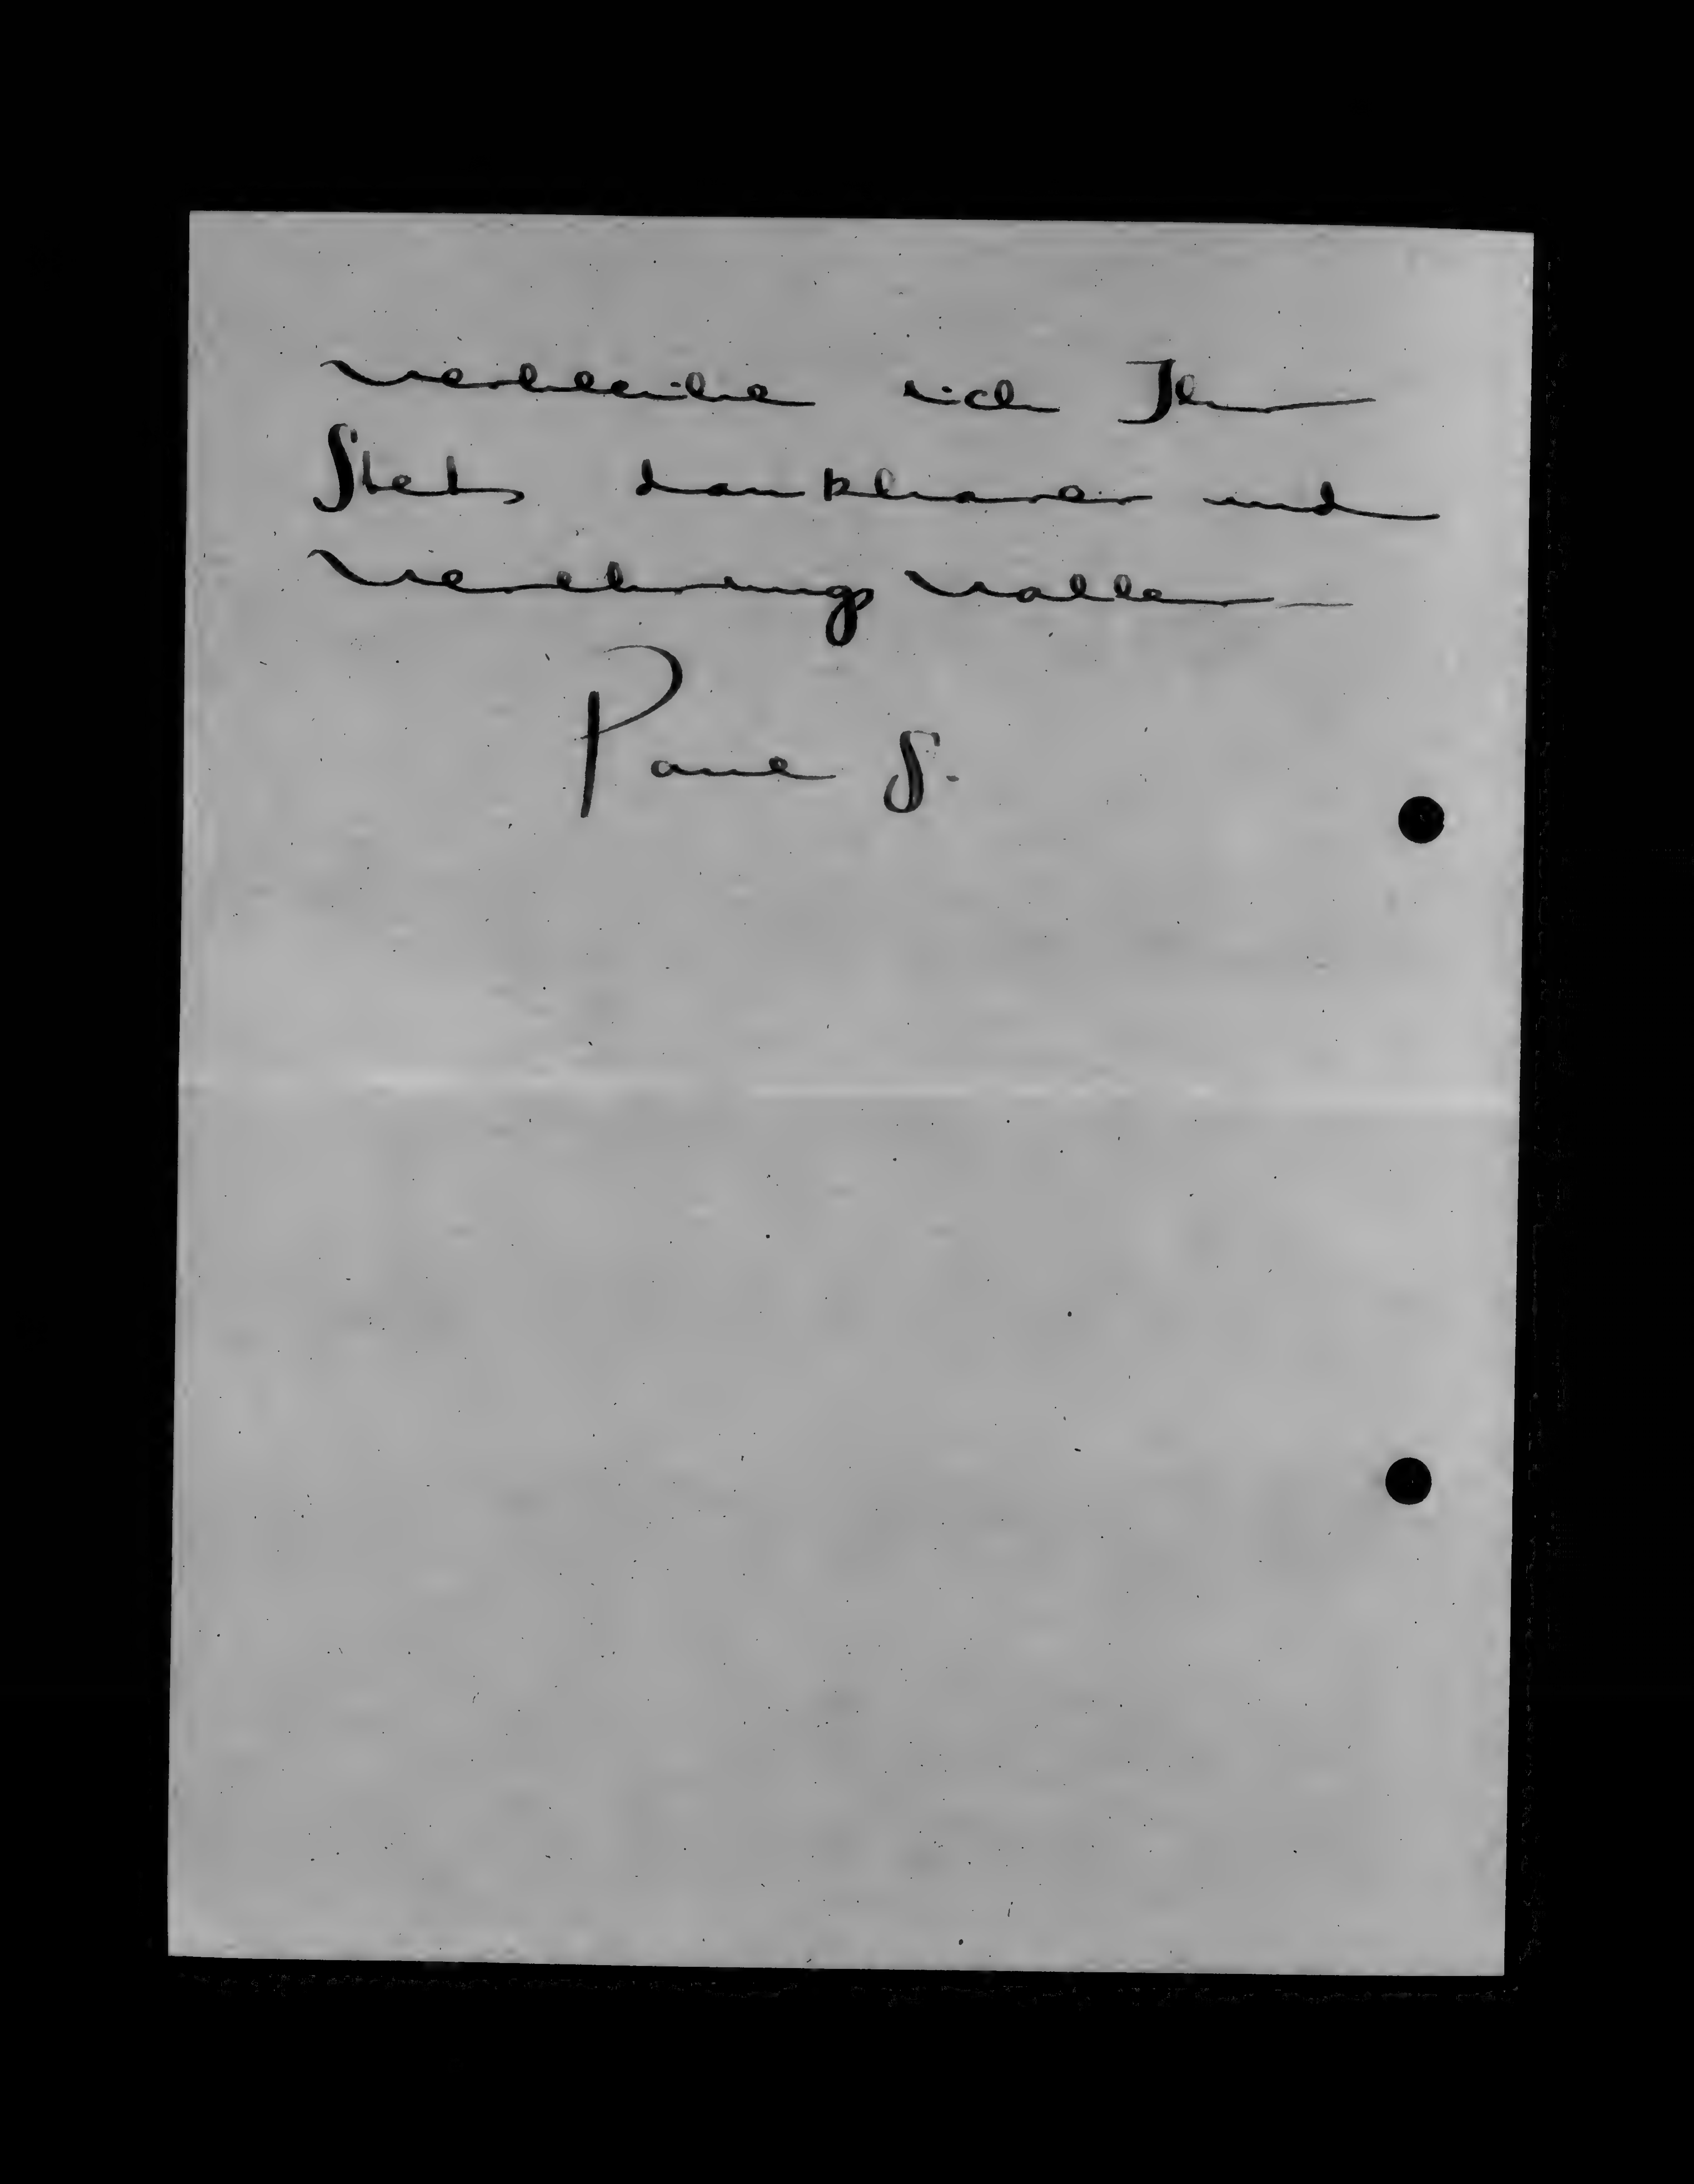 verbleibe ich Ihr
Stets dankbarer und
Verehrungsvoller
Paul S.